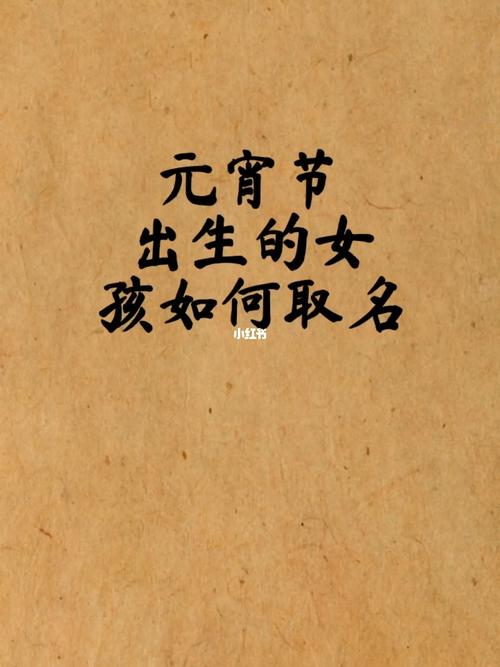 元宵节
出生的女
孩如何取名
小红书